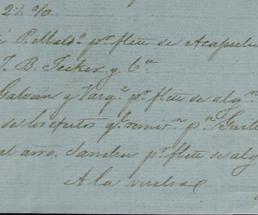 2½ %
P. Maldº pr flete de Acapulco
J. B. Jecker y Cª
Galvan y Vargˢ pr flete de algⁿ
de los efectos q. remitⁿ pª Guill
al arro. Sanchez pr flete de alg
A la vuelta